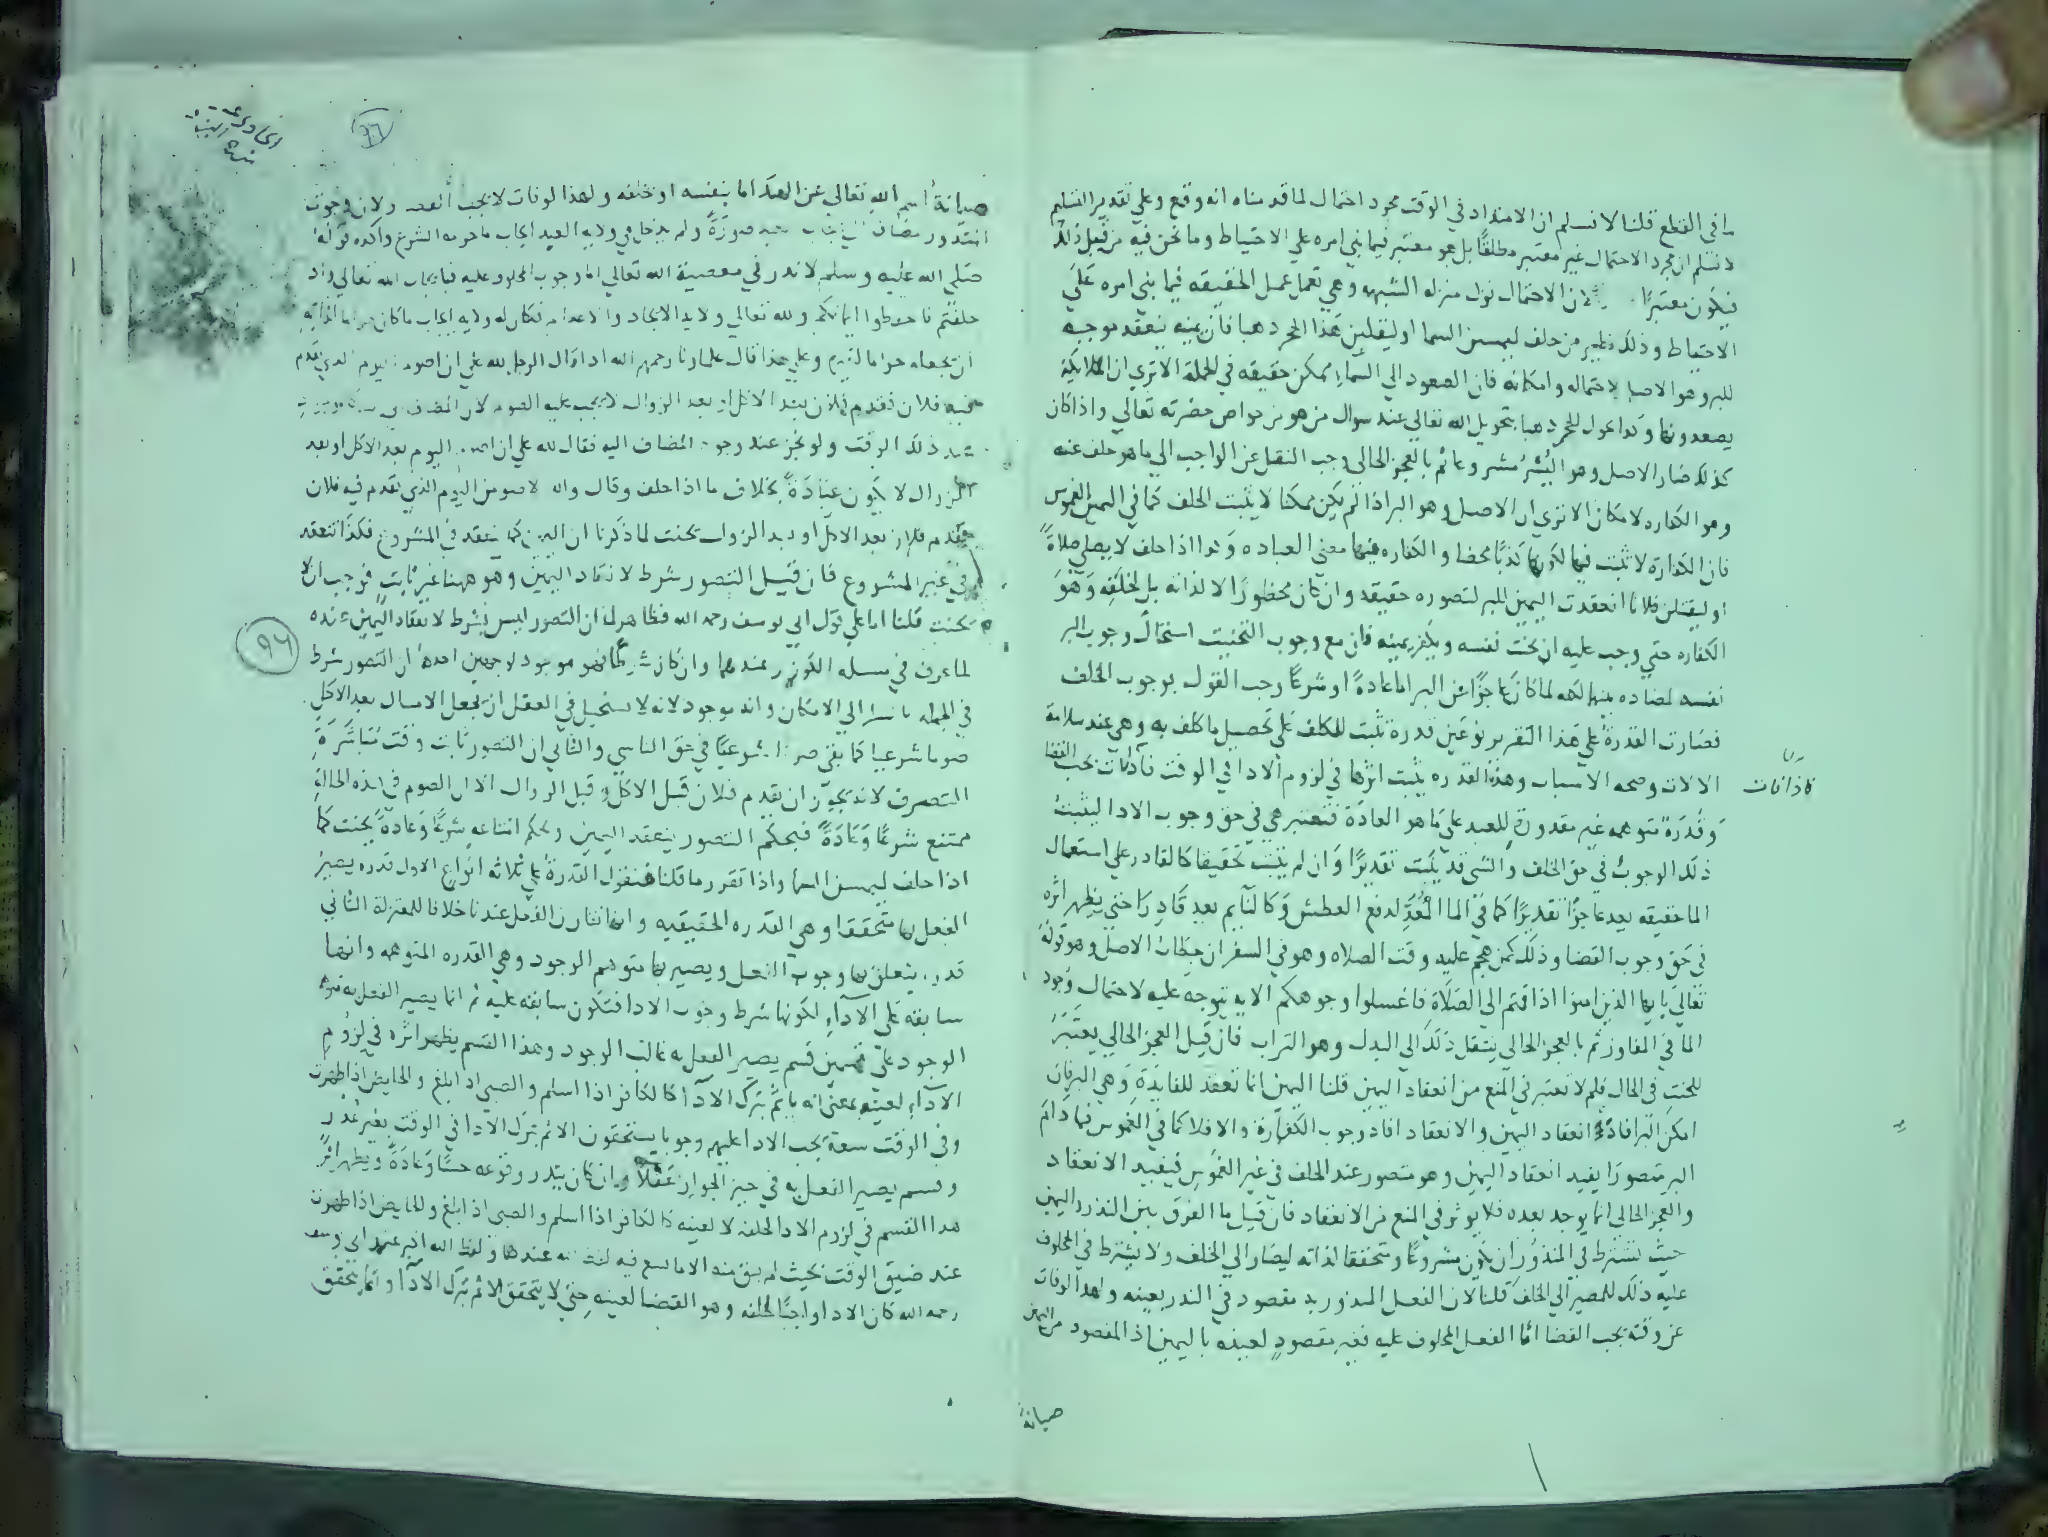 ما في القطع قلنا لا نسلم ان الامتداد في الوقت مجرد احتمال لما قدمناه انه وقع وعلي تقدير التسليم
لا نسلم ان مجرد الاحتمال غير معتبر مطلقا بل هو معتبر فيما بني امره علي الاحتياط وما نحن فيه من قبيل ذلك
فيكون معتبرا لان الاحتمال نزل منزله الشبهه وهي تعمل عمل الحقيقه فيما بني امره علي
الاحتياط وذلك نظير من حلف ليمسن السما او ليقلبن هذا الحجر ذهبا فان يمينه ينعقد موجبه
للبر وهو الاصل لاحتماله وامكانه فان الصعود الي السماء ممكن حقيقه في الجملة الا تري ان الملايكة
يصعدونها وكذا تحول الحجر ذهبا بتحويل الله تعالي عند سوال من هو من خواص حضرته تعالي واذا كان
كذلك صار الاصل وهو البر مشروعا ثم بالعجز الحالي وجب النقل عن الواجب الي ما هو خلف عنه
وهو الكفاره لا مكان الا تري ان الاصل وهو البر اذا لم يكن ممكنا لا يثبت الخلف كما في اليمين الغموس
فان الكفارة لا تثبت فيها لكونها كذبا محضا والكفاره فيها معني العباده وكذا اذا حلف لا يصلي صلاة
او ليقتلن فلانا انعقدت اليمين للبر لتصوره حقيقه وان كان محظورا لا لذاته بل لخلفه وهو
الكفاره حتي وجب عليه ان يحنث نفسه ويكفر يمينه فان مع وجوب التحنيث استحال وجوب البر
نفسه لمضاده بينهما لكنه لما كان عاجزا عن البر اما عادة او شرعا وجب القول بوجوب الخلف
فصارت القدرة علي هذا التقرير نوعين قدرة تثبت للمكلف علي تحصيل ما كلف به وهي عند سلامة
الالات وصحه الاسباب وهذه القدره يثبت اثرها في لزوم الادا في الوقت فاذا فات يجب القضا
فاذا فات
وقدرة متوهمه غير مقدورة للعبد علي ما هو العادة فتعتبر هي في حق وجوب الادا ليثبت
ذلك الوجوب في حق الخلف والشي قد يثبت تقديرا وان لم يثبت تحقيقا كالقادر علي استعمال
الما حقيقه يعد عاجزا تقديرا كما في الما المعد لدفع العطش وكالنايم يعد قادرا حتي يظهر اثره
في حق وجوب القضا وذلك كمن هجم عليه وقت الصلاه وهو في السفر ان خطاب الاصل وهو قوله
تعالي يا ايها الذين امنوا اذا قمتم الي الصلاة فاغسلوا وجوهكم الايه يتوجه عليه لاحتمال وجود
الما في المفاوز ثم بالعجز الحالي ينتقل ذلك الي البدل وهو التراب فان قيل العجز الحالي يعتبر
للحنث في الحال فلم لا تعتبر في المنع من انعقاد اليمين قلنا اليمين انما تعقد للفايدة وهي البر فان
امكن البر افاده انعقاد اليمين والانعقاد افاد وجوب الكفارة والا فلا كما في الغموس فما دام
البر متصورا يفيد انعقاد اليمين وهو متصور عند الحلف في غير الغموس فيفيد الانعقاد
والعجز الحالي انما يوجد بعده فلا يوثر في المنع من الانعقاد فان قيل ما الفرق بين النذر واليمين
حيث تشترط في المنذور ان يكون مشروعا ومتحققا لذاته ليصار الي الخلف ولا يشترط في المحلوف
عليه ذلك للمصير الي الخلف قلنا لان الفعل المنذور به مقصود في النذر بعينه ولهذا لو فات
عن وقته يجب القضا اما الفعل المحلوف عليه فغير مقصود لعينه باليمين اذ المقصود من اليمين
صيانة
٩٦
صيانة اسم الله تعالي عن الهتك اما بنفسه او بخلفه ولهذا لو فات لا يجب القضا ولان وجوب
المنذور مضاف الي ولم يدخل في ولايه العبد ايجاب ما حرمه الشرع واكده قوله
صلي الله عليه وسلم لا نذر في معصية الله تعالي اما وجوب المحلوف عليه فبايجاب الله تعالي واذا
حلفتم فاحفظوا ايمانكم ولله تعالي ولاية الايجاد والاعدام فكان له ولايه ايجاب ما كان حراما
ان يجعله حراما لغيره وعلي هذا قال علماونا رحمهم الله اذا قال الرجل لله علي ان اصوم اليوم الذي يقدم
فيه فلان فقدم فلان بعد الاكل او بعد الزوال لا يجب عليه الصوم لان المضاف
عند ذلك الوقت ولو نجز عند وجود المضاف اليه فقال لله علي ان اصوم اليوم بعد الاكل او بعد
الزوال لا يكون عبادة بخلاف ما اذا حلف وقال والله لاصومن اليوم الذي يقدم فيه فلان
فقدم فلان بعد الاكل او بعد الزوال يحنث لما ذكرنا ان اليمين كما ينعقد في المشروع فكذا تنعقد
في غير المشروع فان قيل التصور شرط لانعقاد اليمين وهو ههنا غير ثابت فوجب ان لا
يحنث قلنا اما علي قول ابي يوسف رحمه الله فظاهر لما ان التصور ليس بشرط لانعقاد اليمين عنده
٩٦
لما عرف في مسله الكوز وعندهما وان كان شرطا فهو موجود لوجهين احدهما ان التصور شرط
في الجمله بالنظر الي الامكان وانه موجود لانه لا يستحيل في العقل ان يجعل الامساك بعد الاكل
صوما شرعيا كما بقي صوما شرعيا في حق الناسي والثاني ان التصور ثابت وقت مباشرة
التصرف لانه يجوز ان يقدم فلان قبل الاكل وقبل الزوال الا ان الصوم في هذه الحالة
ممتنع شرعا وعادة فبحكم التصور ينعقد اليمين وبحكم امتناعه شرعا وعادة يحنث كما
اذا حلف ليمسن السما واذا تقرر ما قلنا فنقول القدرة علي ثلاثه انواع الاول قدره يصير
الفعل بها متحققا وهي القدره الحقيقيه وانها تقارن الفعل عندنا خلافا للمعتزلة الثاني
قدره يتعلق بها وجوب الفعل ويصير بها متوهم الوجود وهي القدره المتوهمه وانها
سابقة علي الاداء لكونها شرط وجوب الادا فتكون سابقه عليه ثم انما يصير الفعل به متوهم
الوجود علي قسمين قسم يصير الفعل به غالب الوجود وهذا القسم يظهر اثره في لزوم
الاداء لعينه بمعني انه ياثم بترك الادا كالكافر اذا اسلم والصبي اذا بلغ والحايض اذا طهرت
وفي الوقت سعة يجب الادا عليهم وجوبا يستحقون الاثم بترك الادا في الوقت بغير عذر
وقسم يصير الفعل به في حيز الجواز عقلا وان كان يندر وقوعه حسا وعادة ويظهر اثر
هذا القسم في لزوم الادا لخلفه لا لعينه كالكافر اذا اسلم والصبي اذا بلغ والحايض اذا طهرت
عند ضيق الوقت بحيث لم يبق منه الا ما يسع فيه لفظ الله عندهما ولفظ الله اكبر عند ابي يوسف
رحمه الله كان الادا واجبا لخلفه وهو القضا لعينه حتي لا يتحقق الاثم بترك الادا وانما يتحقق